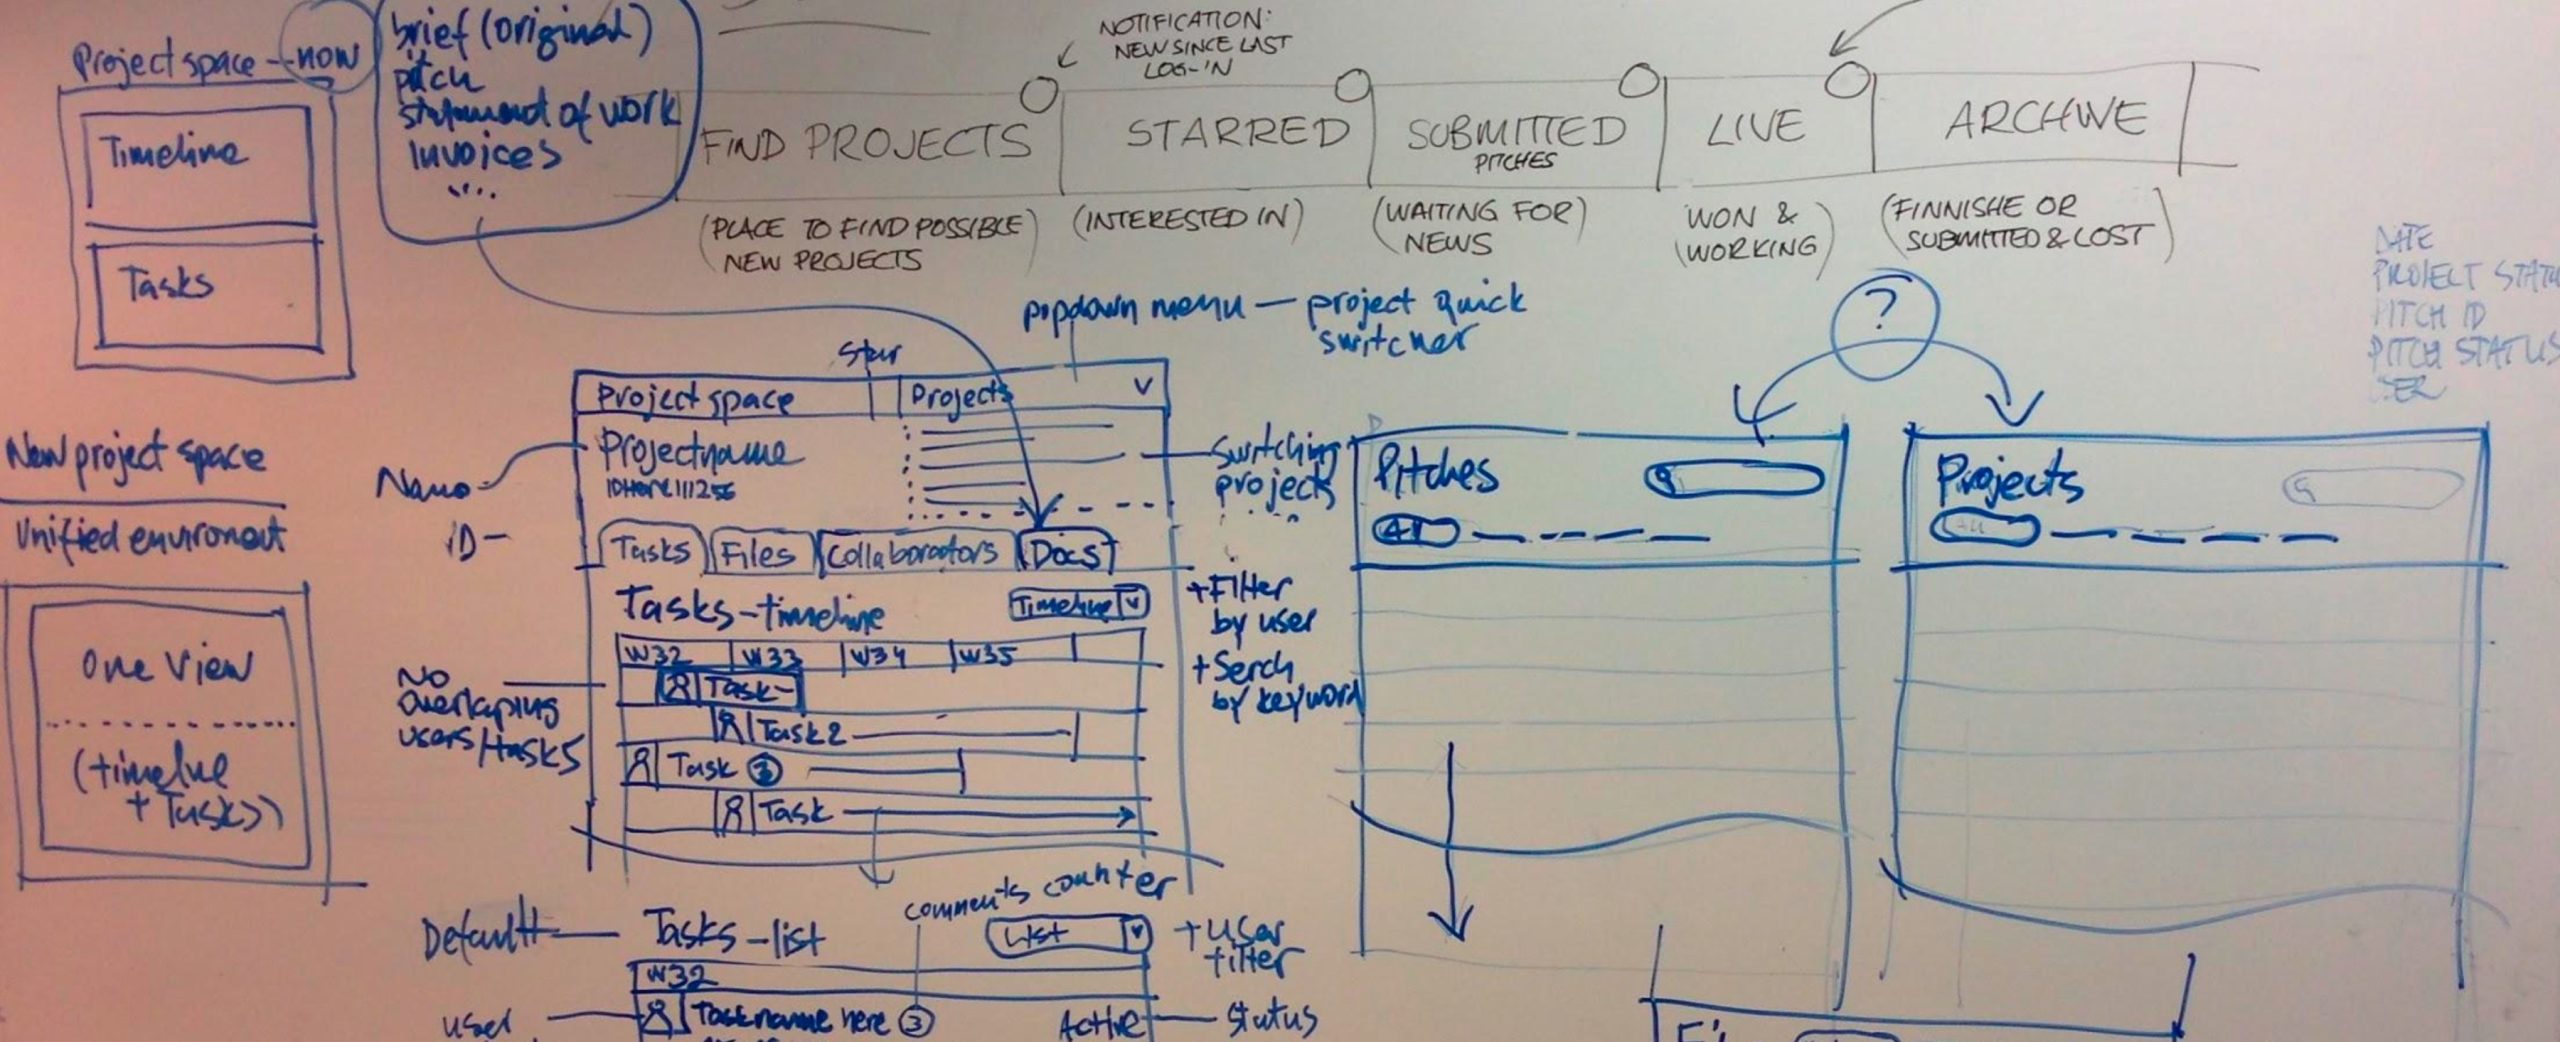 Project space - now
Timeline
Tasks
brief (original)
pitch
statement of work
invoices
....
NOTIFICATION:
NEW SINCE LAST
LOG-IN
FIND PROJECTS
STARRED
SUBMITTED
PITCHES
LIVE
ARCHIVE
(PLACE TO FIND POSSIBLE)
NEW PROJECTS
(INTERESTED IN)
(WAITING FOR)
NEWS
WON &
(WORKING)
(FINNISHE OR
SUBMITTED & LOST)
DATE
PROJECT STATU
PITCH ID
PITCH STATUS
popdown menu — project quick
switcher
?
Star
Project space
Projects
v
New project space
Unified environent
Projectname
Name
ID
Switching
projects
Tasks
Files
Collaborators
Docs
Tasks-timeline
Timeline v
+Filter
by user
+Serch
by keyword
W32
W33
W34
W35
Task-
Task2
Task 3
Task
No
overlaping
users/tasks
One view
(timeline
+ Tasks)
Pitches
All
Projects
All
comments counter
Default
Tasks-list
List v
+user
filter
W32
user
Taskname here 3
Active
Status